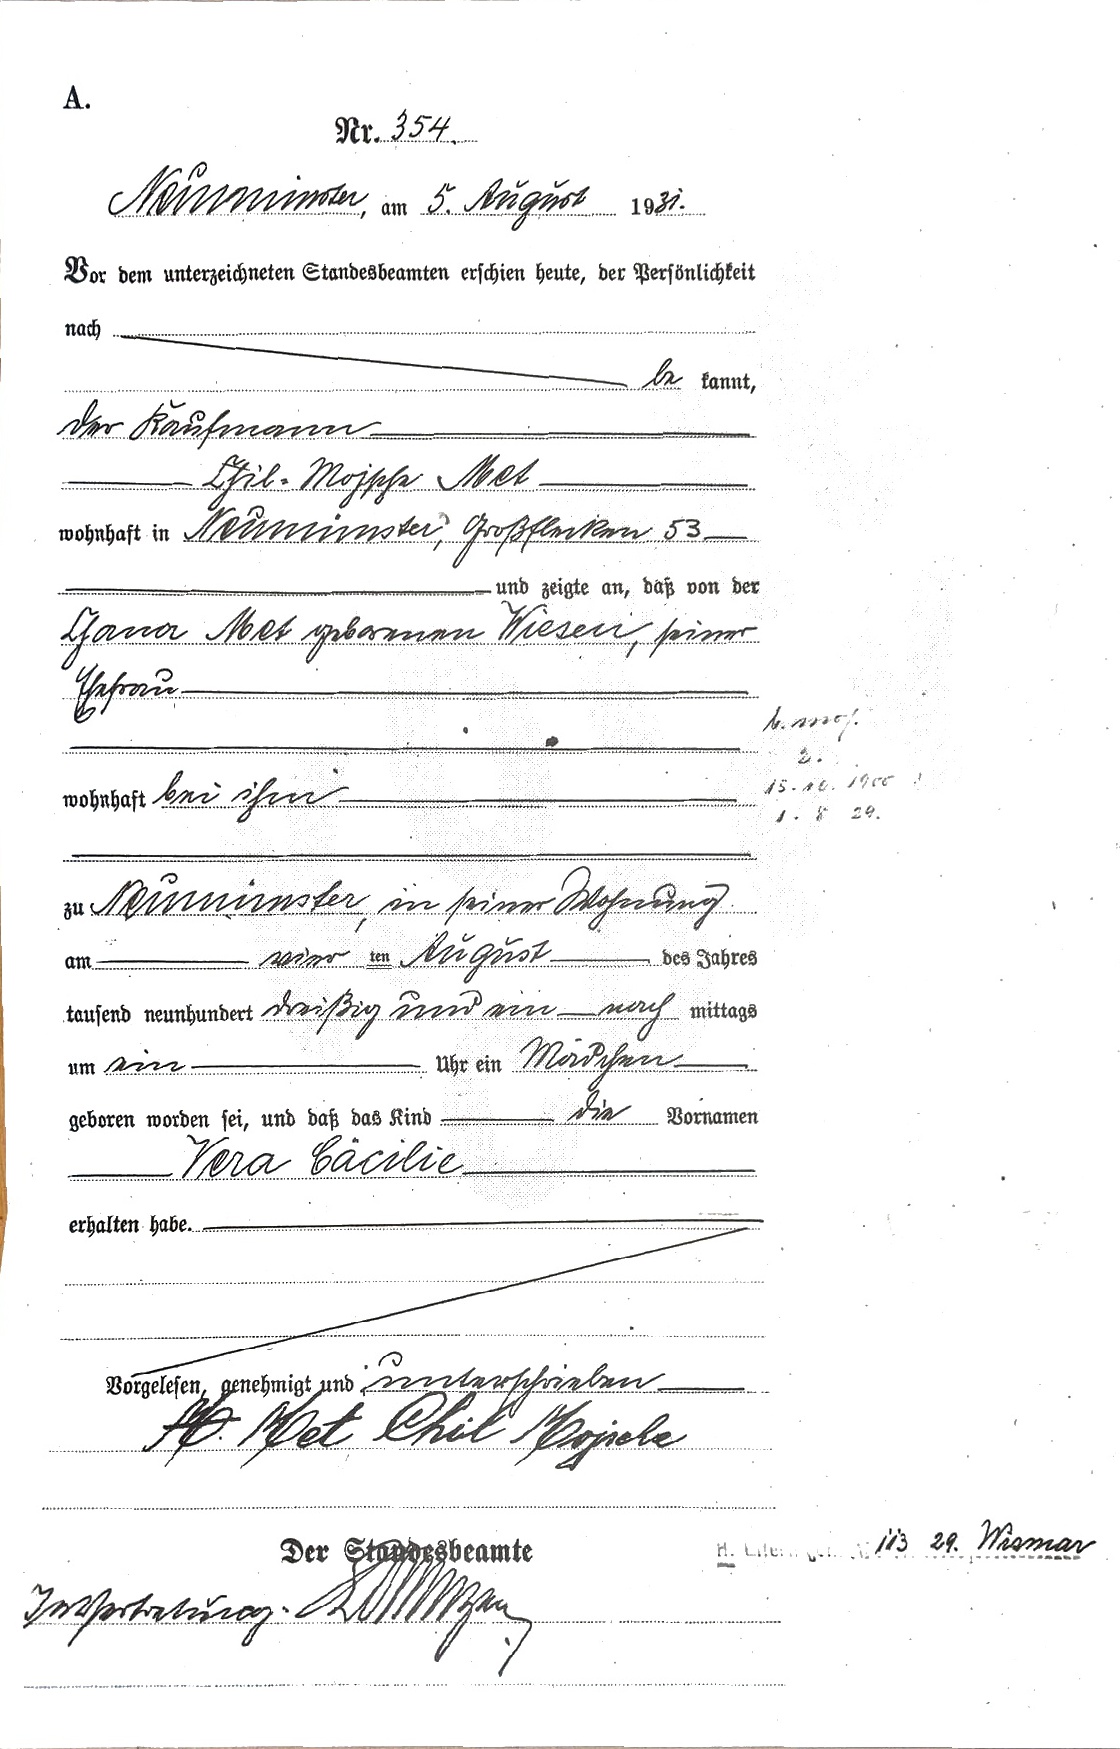 A.
Nr. 354.
Neumünster, am 5. August 1931.
Vor dem unterzeichneten Standesbeamten erschien heute, der Persönlichkeit
nach
be kannt,
der Kaufmann
Chil-Mojsche Met
wohnhaft in Neumünster, Großflecken 53
und zeigte an, daß von der
Chana Met geborenen Wiesen, seiner
Ehefrau
b. mos.
2.
wohnhaft bei ihm
15.10.1900
1. 8 29.
zu Neumünster, in seiner Wohnung
am vier ten August des Jahres
tausend neunhundert dreißig und ein nach mittags
um ein Uhr ein Mädchen
geboren worden sei, und daß das Kind die Vornamen
Vera Cäcilie
erhalten habe.
Vorgelesen, genehmigt und unterschrieben
M. Met Chil Mojsche
Der Standesbeamte
113 29. Wismar
In Vertretung: